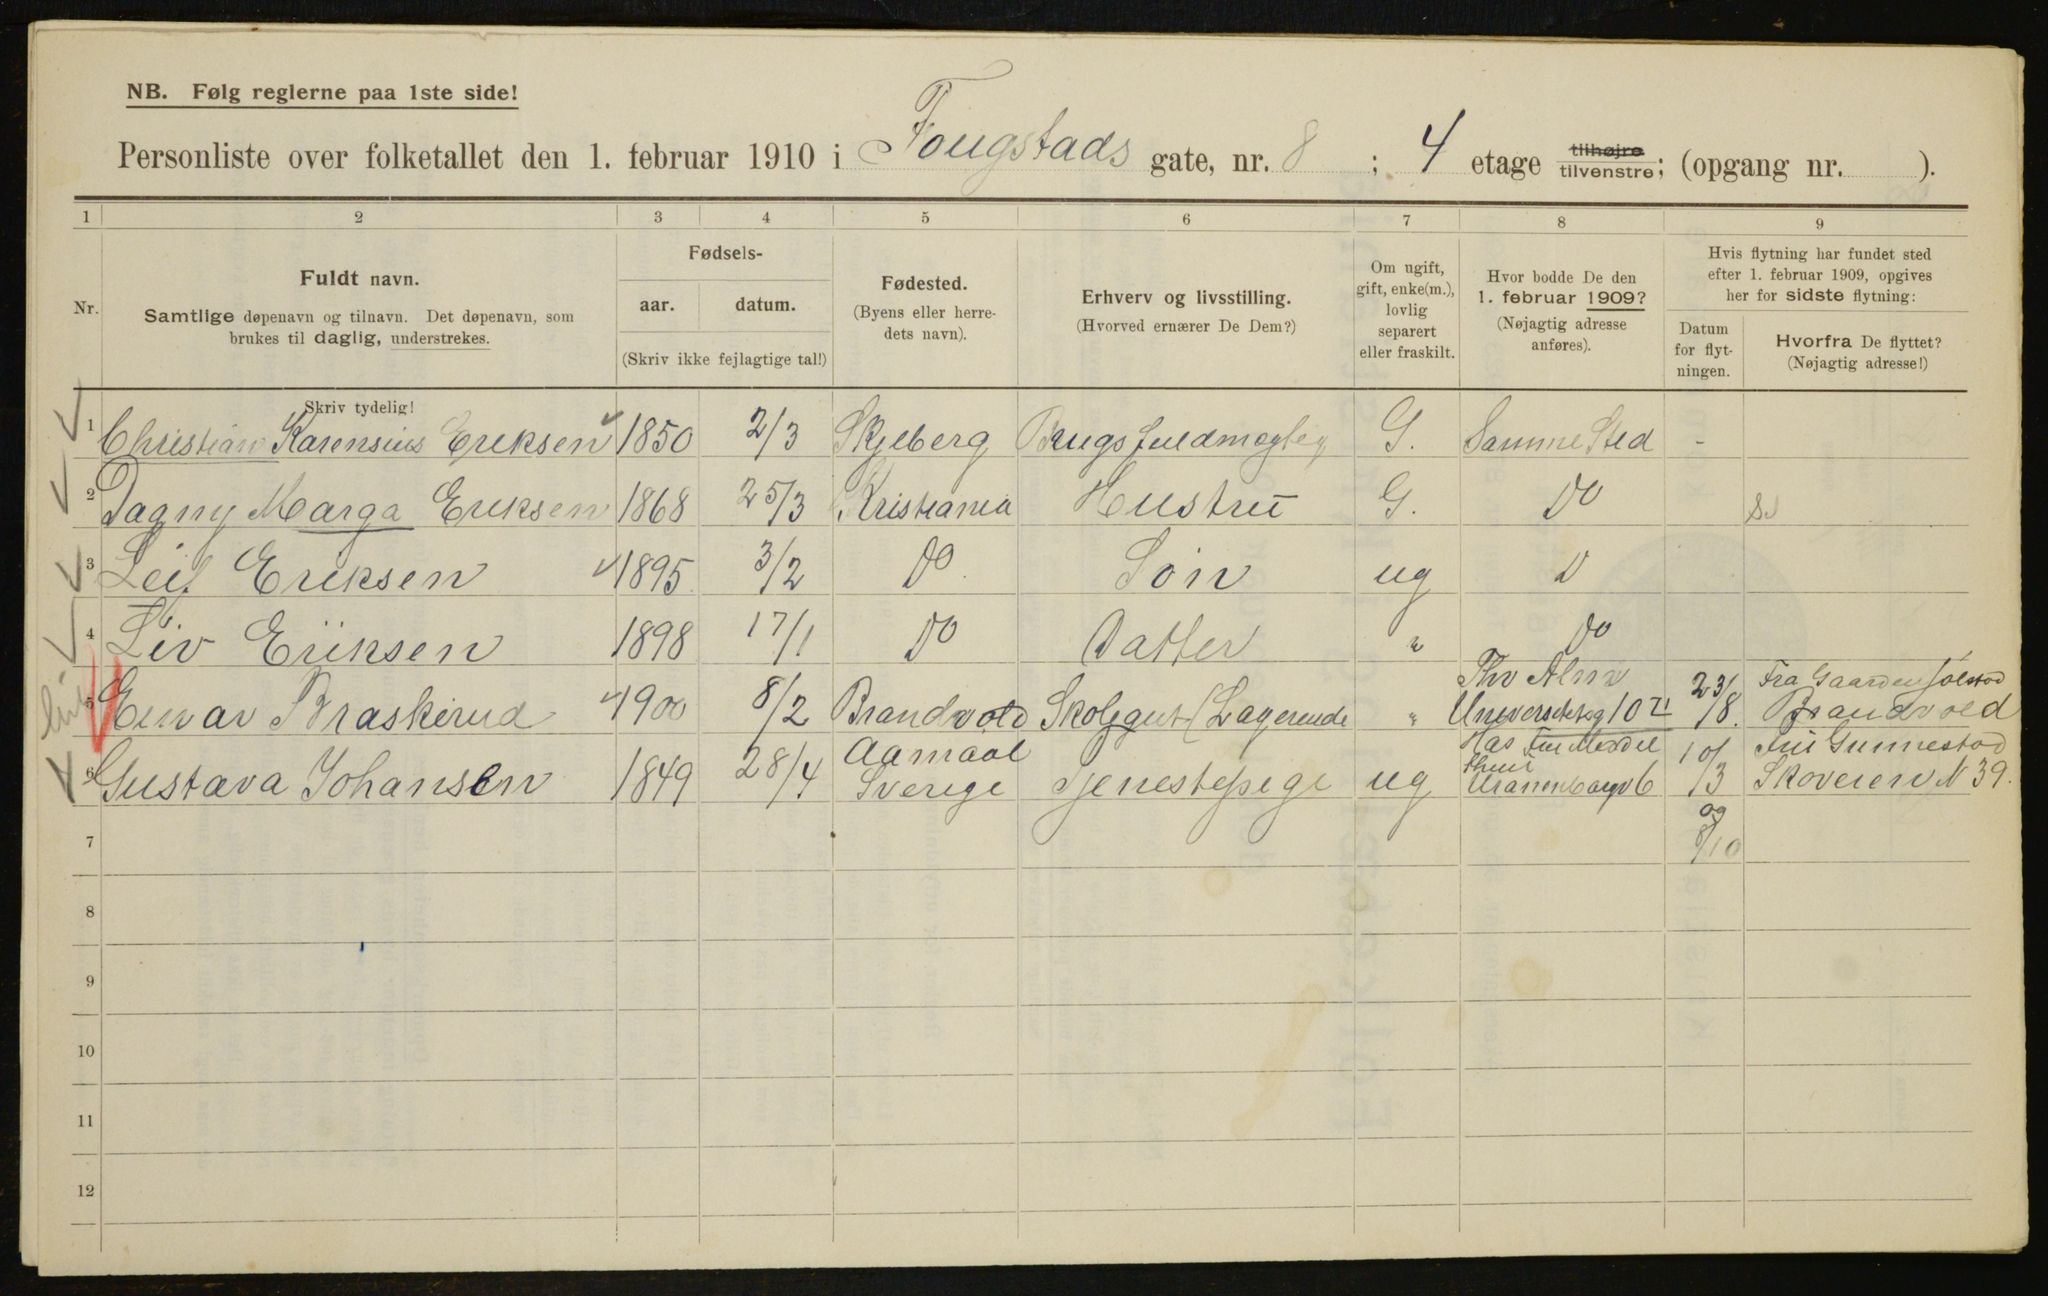 NB. Følg reglerne paa 1ste side!
Personliste over folketallet den 1. februar 1910 i Fougstads gate, nr. 8 ; 4 etage tilhøjre tilvenstre; (opgang nr. ).
1 2 3 4 5 6 7 8 9
Nr.
Fuldt navn.
Samtlige døpenavn og tilnavn. Det døpenavn, som
brukes til daglig, understrekes.
Fødsels-
aar. datum.
(Skriv ikke fejlagtige tal!)
Fødested.
(Byens eller herre-
dets navn).
Erhverv og livsstilling.
(Hvorved ernærer De Dem?)
Om ugift,
gift, enke(m.),
lovlig
separert
eller fraskilt.
Hvor bodde De den
1. februar 1909?
(Nøjagtig adresse
anføres).
Hvis flytning har fundet sted
efter 1. februar 1909, opgives
her for sidste flytning:
Datum
for flyt-
ningen.
Hvorfra De flyttet?
(Nøjagtig adresse!)
Skriv tydelig!
1 Christian Karensius Eriksen 1850 2/3 Skjeberg Brugsfuldmægtig G. Samme Sted -
2 Dagny Marga Eriksen 1868 25/3 Kristiania Hustru G. Do
3 Leif Eriksen 1895 3/2 Do Søn ug D
4 Liv Eriksen 1898 17/1 Do Datter " Do
5 Einar Braskerud 1900 8/2 Brandvold Skolegut (Lagerende " Thv Alm Universitetsg 10 23/8. Fra Gaarden Jølstad Brandvold
6 Gustava Johansen 1849 28/4 Aamaal Sverige Tjenestepige ug Hos Fru Uranienborgv 6 10/3 og 8/10 Fru Gunnestad Skoveien N 39.
7
8
9
10
11
12